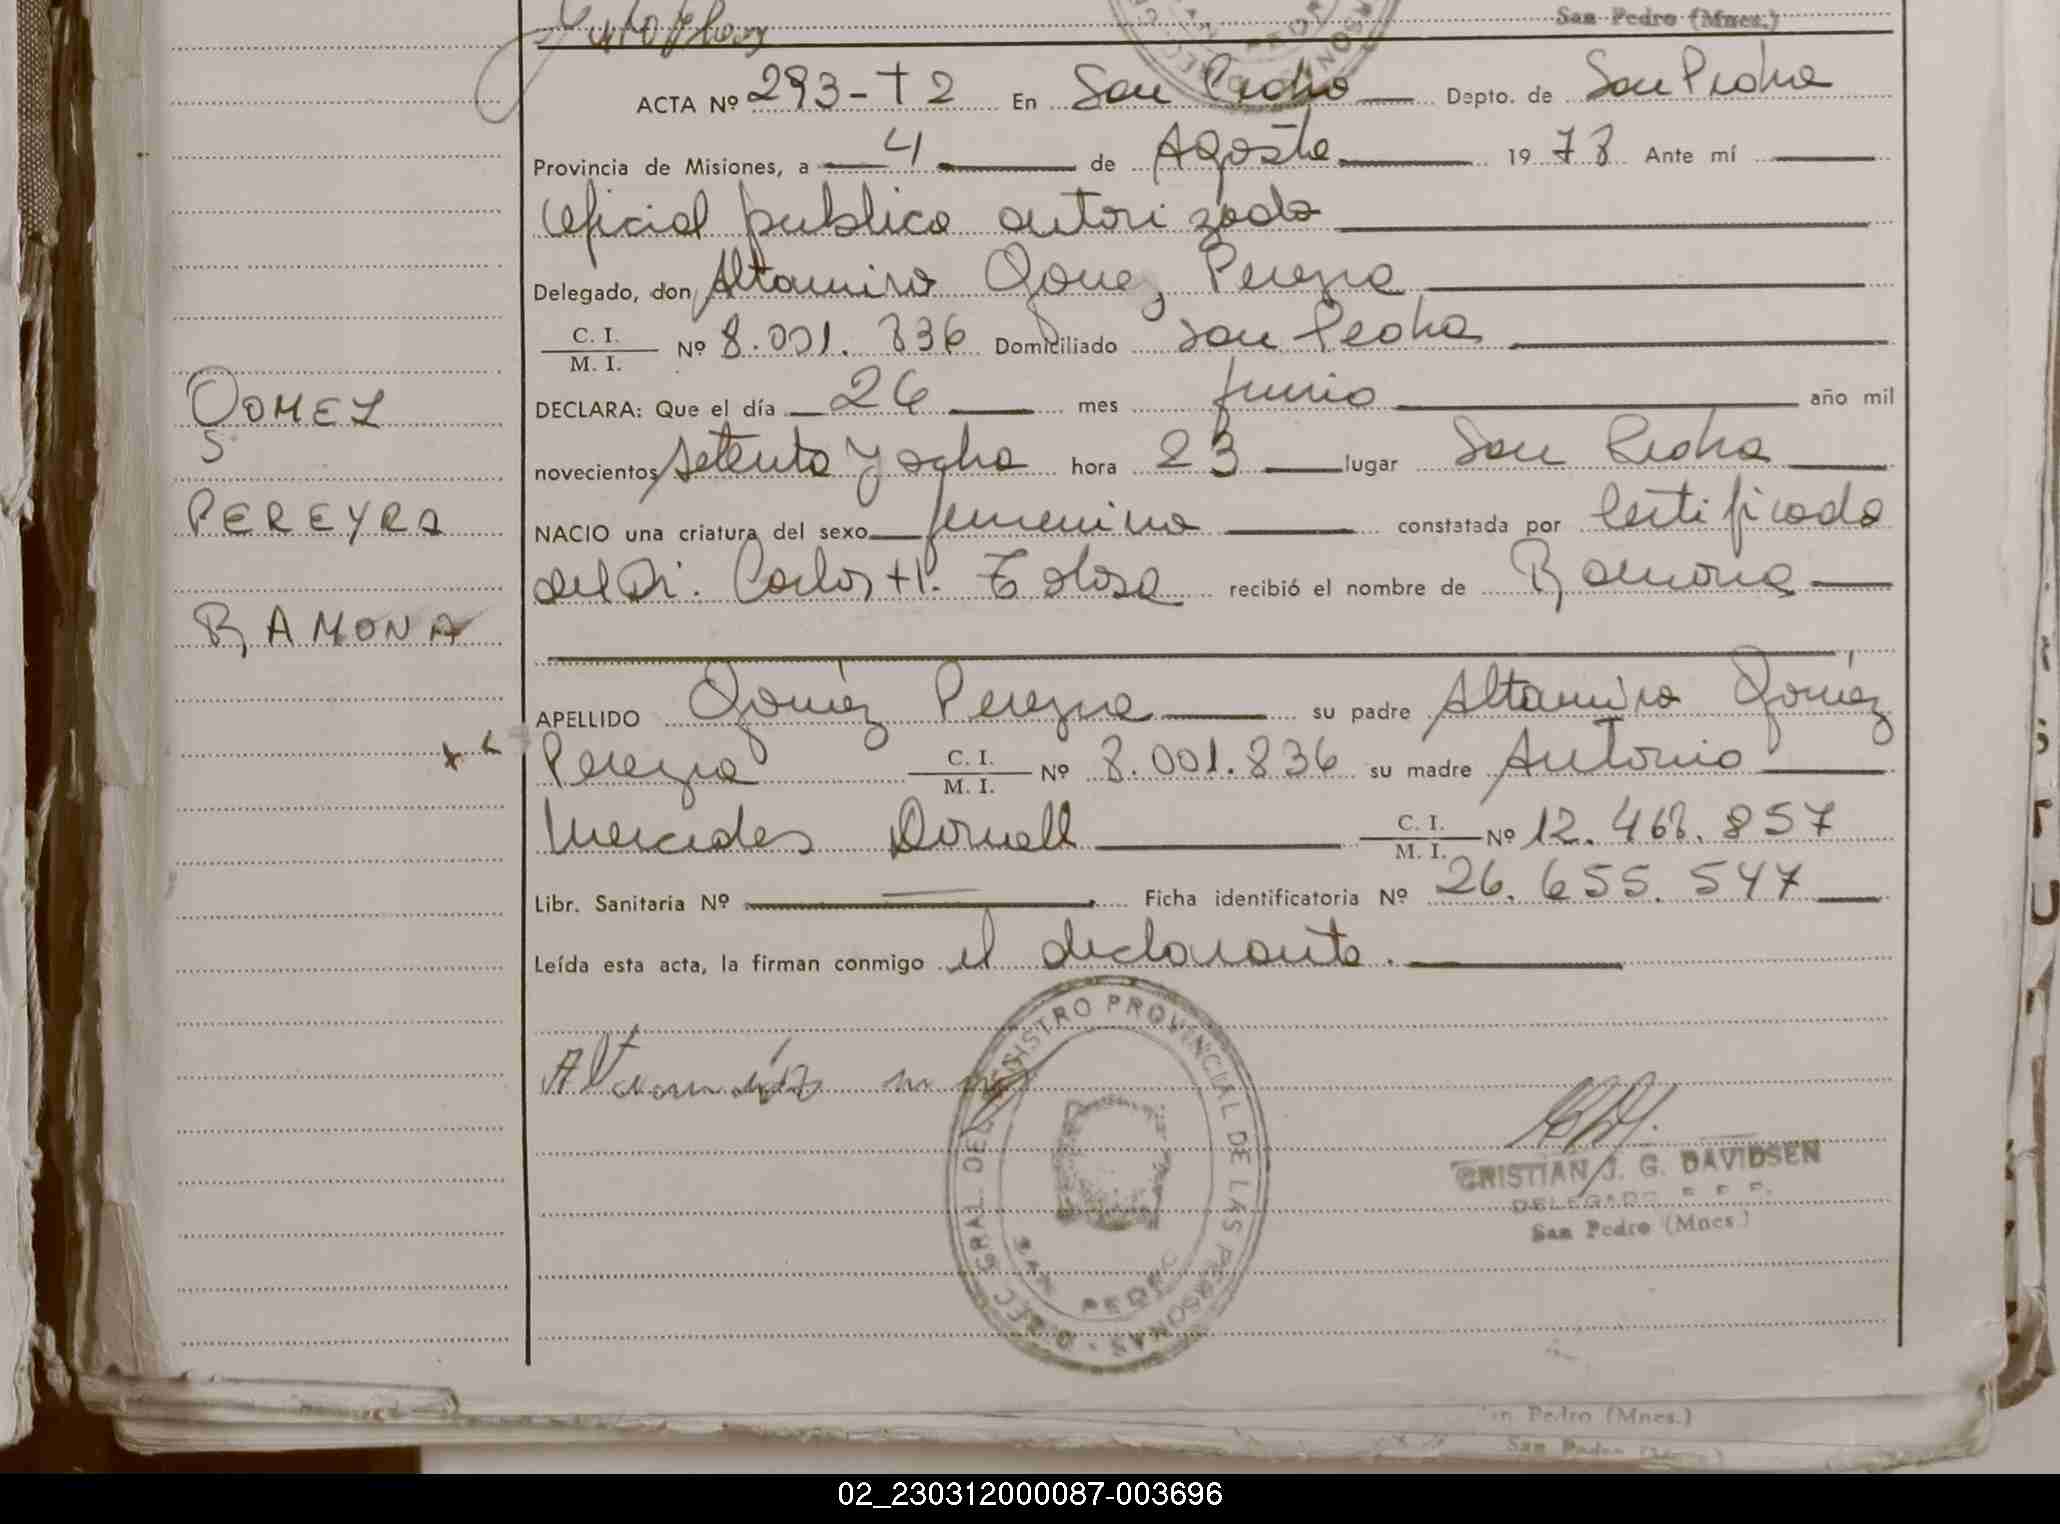 San Pedro (Mnes.)
ACTA Nº 293-T2 En San Pedro Depto. de San Pedro
Provincia de Misiones, a 4 de Agosto 1978 Ante mí
Oficial publico autorizado
Delegado, don Altamiro Gomez Pereyra
C. I.
M. I. Nº 8.001.836 Domiciliado San Pedro
DECLARA: Que el día 26 mes Junio año mil
novecientos setenta y ocho hora 23 lugar San Pedro
NACIO una criatura del sexo femenino constatada por Certificado
del Dr. Carlos H. Tolosa recibió el nombre de Ramona
APELLIDO Goméz Pereyra su padre Altamiro Goméz
Pereyra C. I. M. I. Nº 8.001.836 su madre Antonia
Mercedes Dornell C. I. M. I. Nº 12.468.857
Libr. Sanitaria Nº Ficha identificatoria Nº 26.655.547
Leída esta acta, la firman conmigo el declarante.
GOMEZ
PEREYRA
RAMONA
DIREC. GRAL. DEL REGISTRO PROVINCIAL DE LAS PERSONAS
SAN PEDRO
CRISTIAN J. G. DAVIDSEN
DELEGADO
San Pedro (Mnes.)
San Pedro (Mnes.)
San Pedro (Mnes.)
02_230312000087-003696